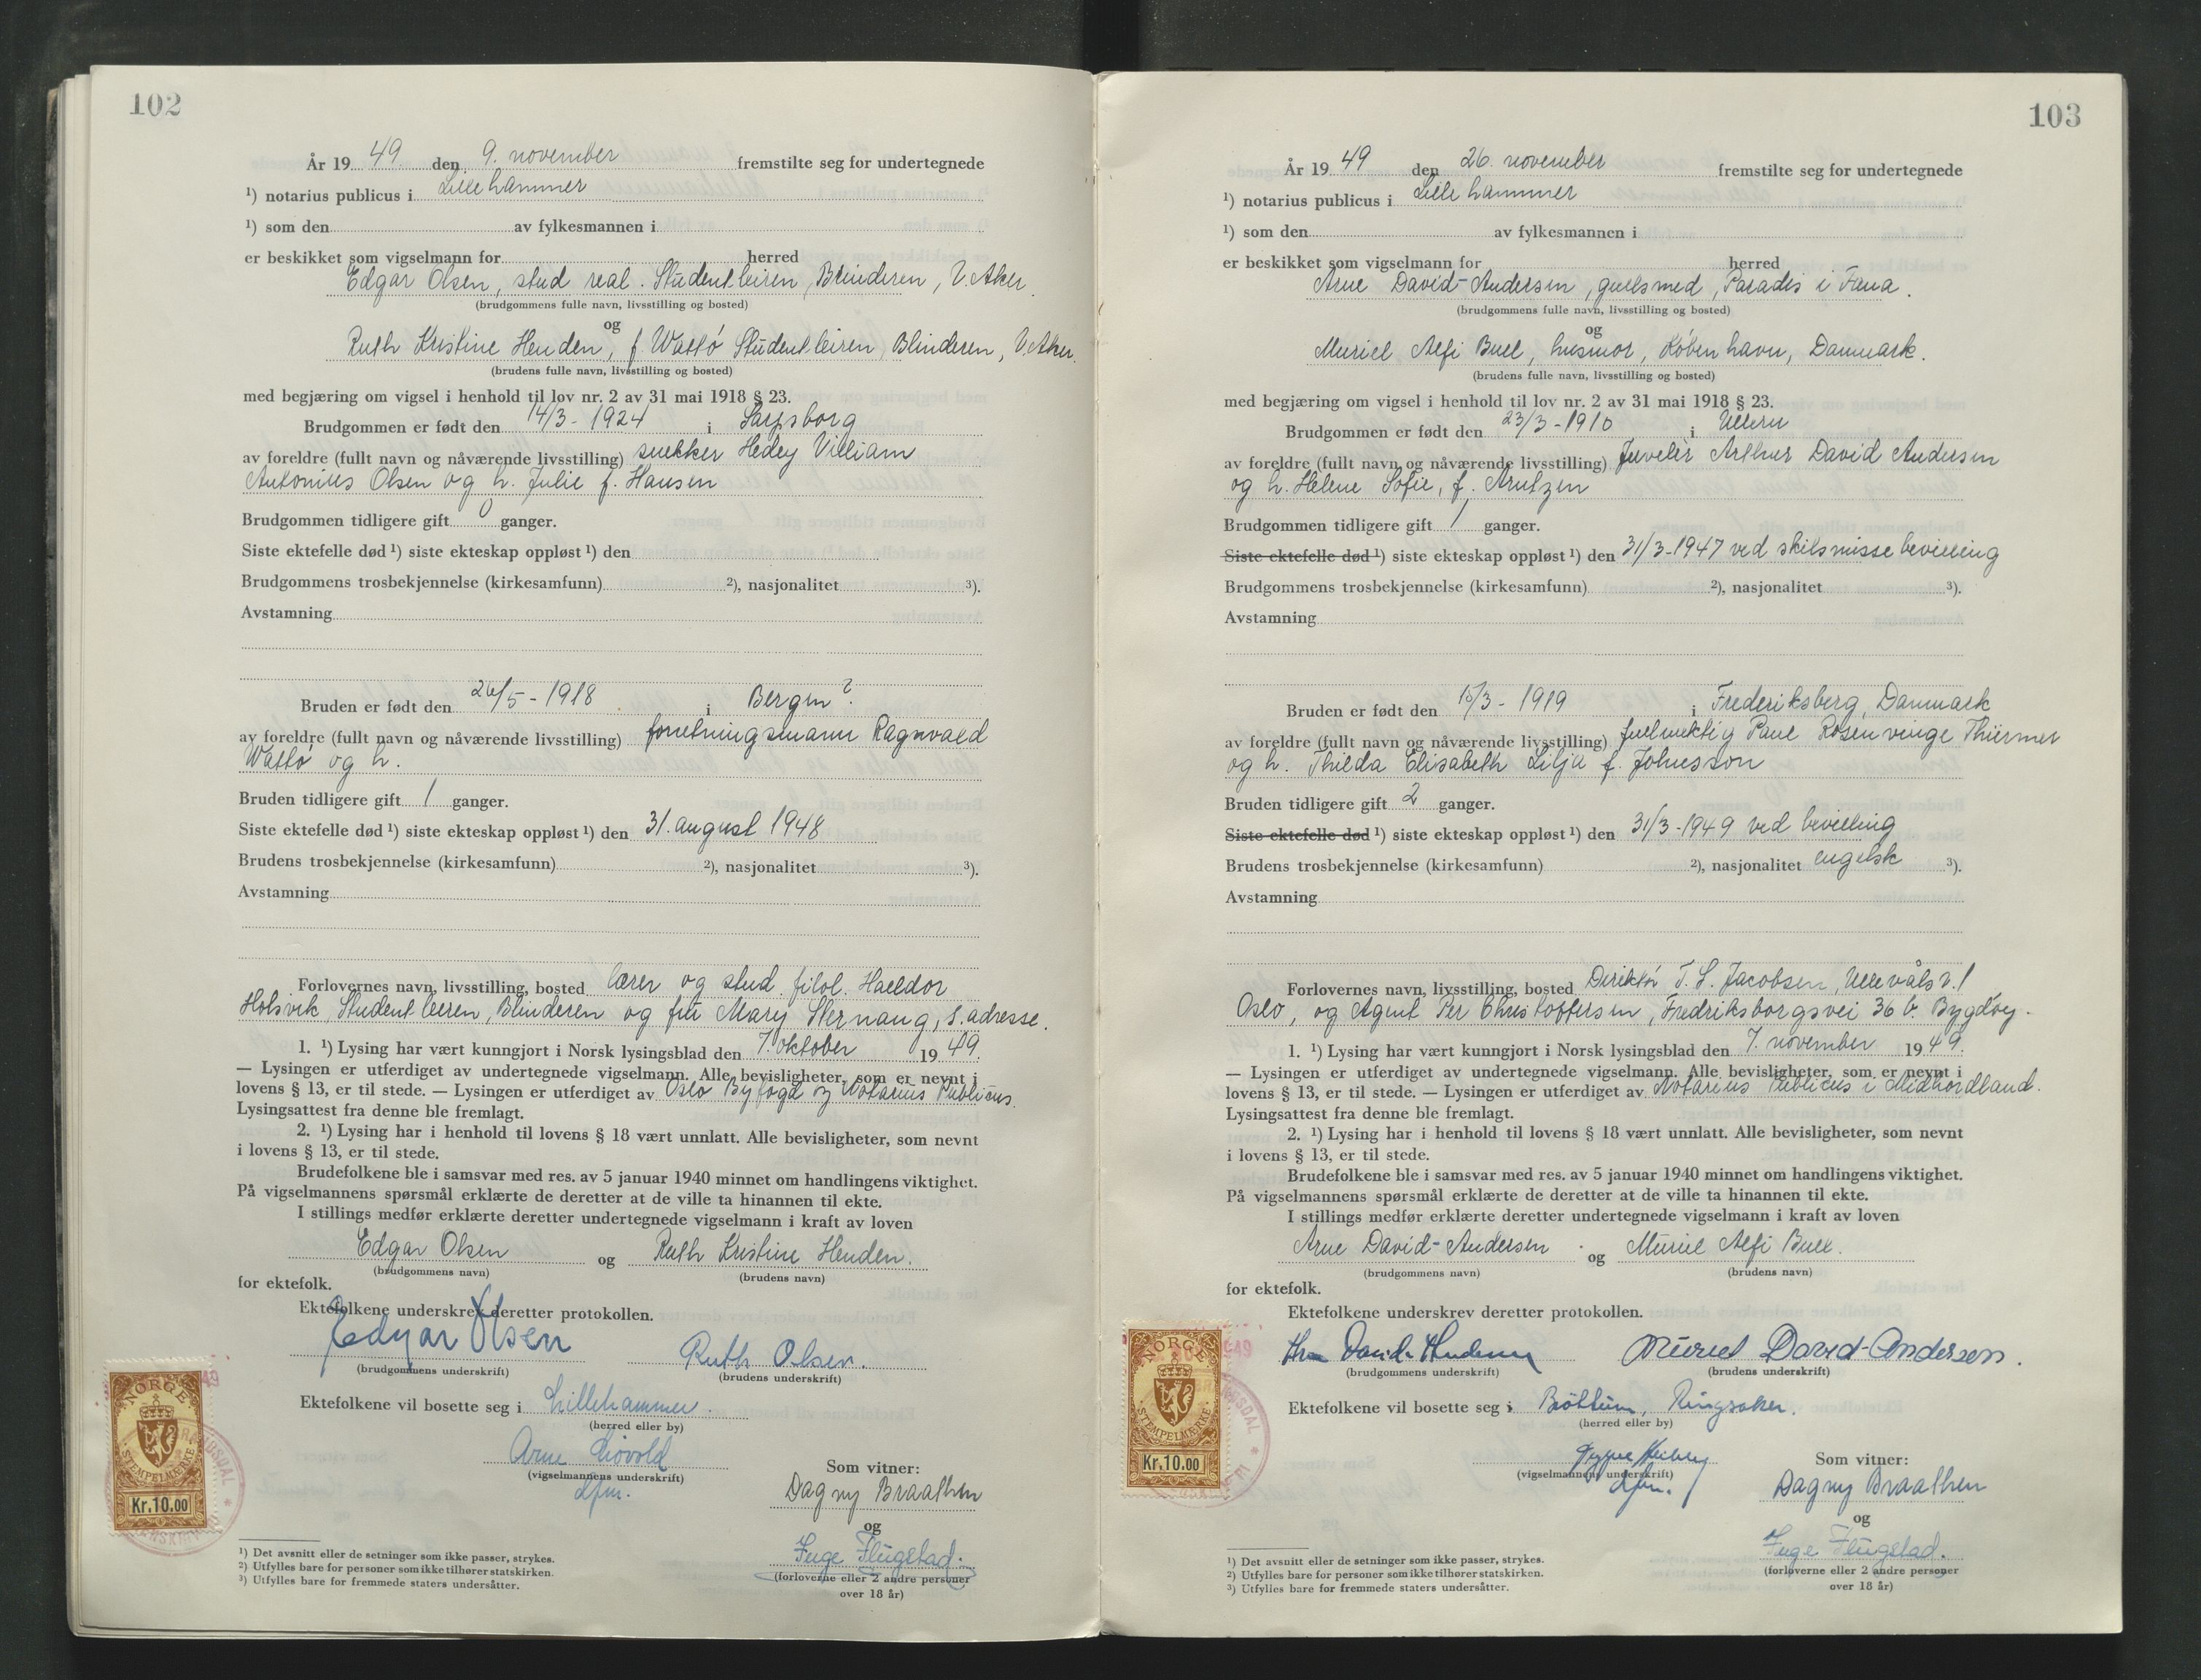 102
År 19 49. den 9. november fremstilte seg for undertegnede
¹) notarius publicus i Lillehammer
¹) som den av fylkesmannen i
er beskikket som vigselmann for herred
Edgar Olsen, stud real. Studentleiren, Blinderen, V. Aker.
(brudgommens fulle navn, livsstilling og bosted)
og
Ruth Kristine Henden, f. Wattø Studentleiren, Blinderen, V. Aker.
(brudens fulle navn, livsstilling og bosted)
med begjæring om vigsel i henhold til lov nr. 2 av 31 mai 1918 § 23.
Brudgommen er født den 14/3 - 1924 i Sarpsborg
av foreldre (fullt navn og nåværende livsstilling) snekker Hedey Villiam
Antonius Olsen og h. Julie f. Hansen
Brudgommen tidligere gift 0 ganger.
Siste ektefelle død ¹) siste ekteskap oppløst ¹) den
Brudgommens trosbekjennelse (kirkesamfunn) ²), nasjonalitet ³).
Avstamning
Bruden er født den 26/5 - 1918 i Bergen ?
av foreldre (fullt navn og nåværende livsstilling) forretningsmann Ragnvald
Wattø og h.
Bruden tidligere gift 1 ganger.
Siste ektefelle død ¹) siste ekteskap oppløst ¹) den 31. august 1948
Brudens trosbekjennelse (kirkesamfunn) ²), nasjonalitet ³).
Avstamning
Forlovernes navn, livsstilling, bosted lærer og stud. filol. Halldor
Holsvik, Studentleiren, Blinderen og frk Mary Sternang, s. adresse.
1. ¹) Lysing har vært kunngjort i Norsk lysingsblad den 7. oktober 19 49.
— Lysingen er utferdiget av undertegnede vigselmann. Alle bevisligheter, som er nevnt i
lovens § 13, er til stede. — Lysingen er utferdiget av Oslo Byfogd og Notarius Publicus.
Lysingsattest fra denne ble fremlagt.
2. ¹) Lysing har i henhold til lovens § 18 vært unnlatt. Alle bevisligheter, som nevnt
i lovens § 13, er til stede.
Brudefolkene ble i samsvar med res. av 5 januar 1940 minnet om handlingens viktighet.
På vigselmannens spørsmål erklærte de deretter at de ville ta hinannen til ekte.
I stillings medfør erklærte deretter undertegnede vigselmann i kraft av loven
Edgar Olsen og Ruth Kristine Henden.
(brudgommens navn) (brudens navn)
for ektefolk.
Ektefolkene underskrev deretter protokollen.
Edgar Olsen Ruth Olsen.
(brudgommens underskrift) (brudens underskrift)
Ektefolkene vil bosette seg i Lillehammer.
(herred eller by)
Arne Liovold
(vigselmannens underskrift)
dfm.
Som vitner:
Dagny Braathen
og
Inge Flugstad.
(forloverne eller 2 andre personer
over 18 år)
NORGE
STEMPELMÆRKE
Kr.10.00
¹) Det avsnitt eller de setninger som ikke passer, strykes.
²) Utfylles bare for personer som ikke tilhører statskirken.
³) Utfylles bare for fremmede staters undersåtter.
103
År 19 49 den 26. november fremstilte seg for undertegnede
¹) notarius publicus i Lillehammer
¹) som den av fylkesmannen i
er beskikket som vigselmann for herred
Arne David-Andersen, gullsmed, Paradis i Fana.
(brudgommens fulle navn, livsstilling og bosted)
og
Muriel Alfi Bull, husmor, København, Danmark.
(brudens fulle navn, livsstilling og bosted)
med begjæring om vigsel i henhold til lov nr. 2 av 31 mai 1918 § 23.
Brudgommen er født den 23/3 - 1910 i Ullern
av foreldre (fullt navn og nåværende livsstilling) Juvelèr Arthur David Andersen
og h. Helene Sofie, f. Arntzen
Brudgommen tidligere gift 1 ganger.
Siste ektefelle død ¹) siste ekteskap oppløst ¹) den 31/3 - 1947 ved skilsmisse bevilling
Brudgommens trosbekjennelse (kirkesamfunn) ²), nasjonalitet ³).
Avstamning
Bruden er født den 15/3 - 1919 i Frederiksberg, Danmark
av foreldre (fullt navn og nåværende livsstilling) fullmektig Paul Rosenvinge Thürmer
og h. Thilda Elisabeth Lilja f. Johnsson
Bruden tidligere gift 2 ganger.
Siste ektefelle død ¹) siste ekteskap oppløst ¹) den 31/3 - 1949 ved bevilling
Brudens trosbekjennelse (kirkesamfunn) ²), nasjonalitet engelsk ³).
Avstamning
Forlovernes navn, livsstilling, bosted Direktør T. S. Jacobsen, Ullevålsv. 1
Oslo, og Agent Per Christoffersen, Fredriksborgsvei 36 b. Bygdøy.
1. ¹) Lysing har vært kunngjort i Norsk lysingsblad den 7. november 19 49.
— Lysingen er utferdiget av undertegnede vigselmann. Alle bevisligheter, som er nevnt i
lovens § 13, er til stede. — Lysingen er utferdiget av Notarius Publicus i Midhordland.
Lysingsattest fra denne ble fremlagt.
2. ¹) Lysing har i henhold til lovens § 18 vært unnlatt. Alle bevisligheter, som nevnt
i lovens § 13, er til stede.
Brudefolkene ble i samsvar med res. av 5 januar 1940 minnet om handlingens viktighet.
På vigselmannens spørsmål erklærte de deretter at de ville ta hinannen til ekte.
I stillings medfør erklærte deretter undertegnede vigselmann i kraft av loven
Arne David-Andersen og Muriel Alfi Bull.
(brudgommens navn) (brudens navn)
for ektefolk.
Ektefolkene underskrev deretter protokollen.
Arne David-Andersen Muriel David-Andersen.
(brudgommens underskrift) (brudens underskrift)
Ektefolkene vil bosette seg i Brøttum, Ringsaker.
(herred eller by)
(vigselmannens underskrift)
dfm.
Som vitner:
Dagny Braathen
og
Inge Flugstad.
(forloverne eller 2 andre personer
over 18 år)
NORGE
STEMPELMÆRKE
Kr.10.00
¹) Det avsnitt eller de setninger som ikke passer, strykes.
²) Utfylles bare for personer som ikke tilhører statskirken.
³) Utfylles bare for fremmede staters undersåtter.